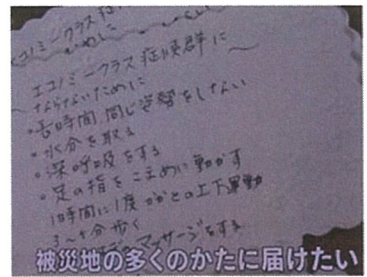 エコノミークラス症候群に
ならないために
エコノミークラス症候群に
ならないために
・長時間、同じ姿勢をしない
・水分を取る
・深呼吸をする
・足の指をこまめに動かす
1時間に1度 かかとの上下運動
3〜 分歩く
マッサージをする
被災地の多くのかたに届けたい